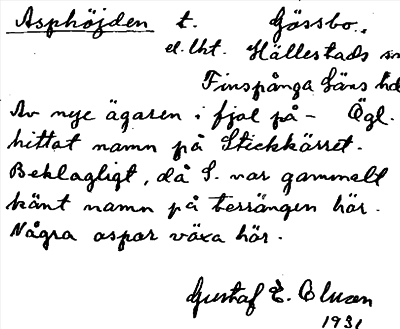 Asphöjden t. Gössbo.,
el. lht. Hällestads sn
Finspånga läns hd
Av nye ägaren i fjol på- Ögl.
hittat namn på Stickkärret.
Beklagligt, då S. var gammalt
känt namn på terrängen här.
Några aspar växa här.
Gustaf E.
1931